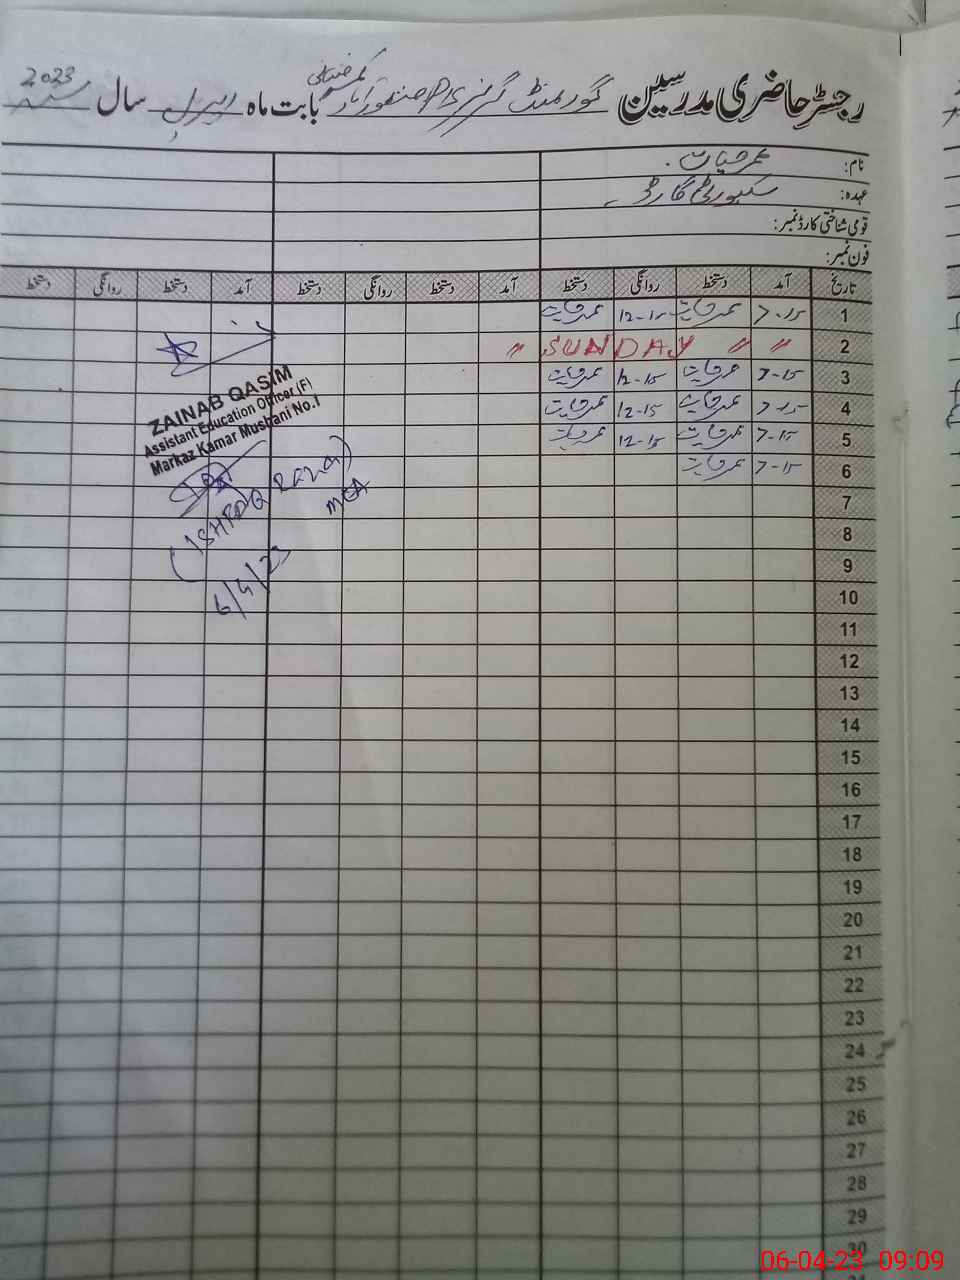 رجسٹر حاضری مدرسین گورنمنٹ گرلز P/S منصور آباد بابت ماہ اپریل سال 2023
نام: عمر حیات
عہدہ: سکیورٹی گارڈ
قومی شناختی کارڈ نمبر:
فون نمبر:
تاریخ آمد دستخط روانگی دستخط آمد دستخط روانگی دستخط آمد دستخط روانگی دستخط
1 7-15 عمر حیات 12-15 عمر حیات
2 〃 〃 SUNDAY 〃
3 7-15 عمر حیات 12-15 عمر حیات
4 7-15 عمر حیات 12-15 عمر حیات
5 7-15 عمر حیات 12-15 عمر حیات
6 7-15 عمر حیات
7
8
9
10
11
12
13
14
15
16
17
18
19
20
21
22
23
24
25
26
27
28
29
30
ZAINAB QASIM
Assistant Education Officer (F)
Markaz Kamar Mushani No.1
MEA
6/4/23
06-04-23 09:09